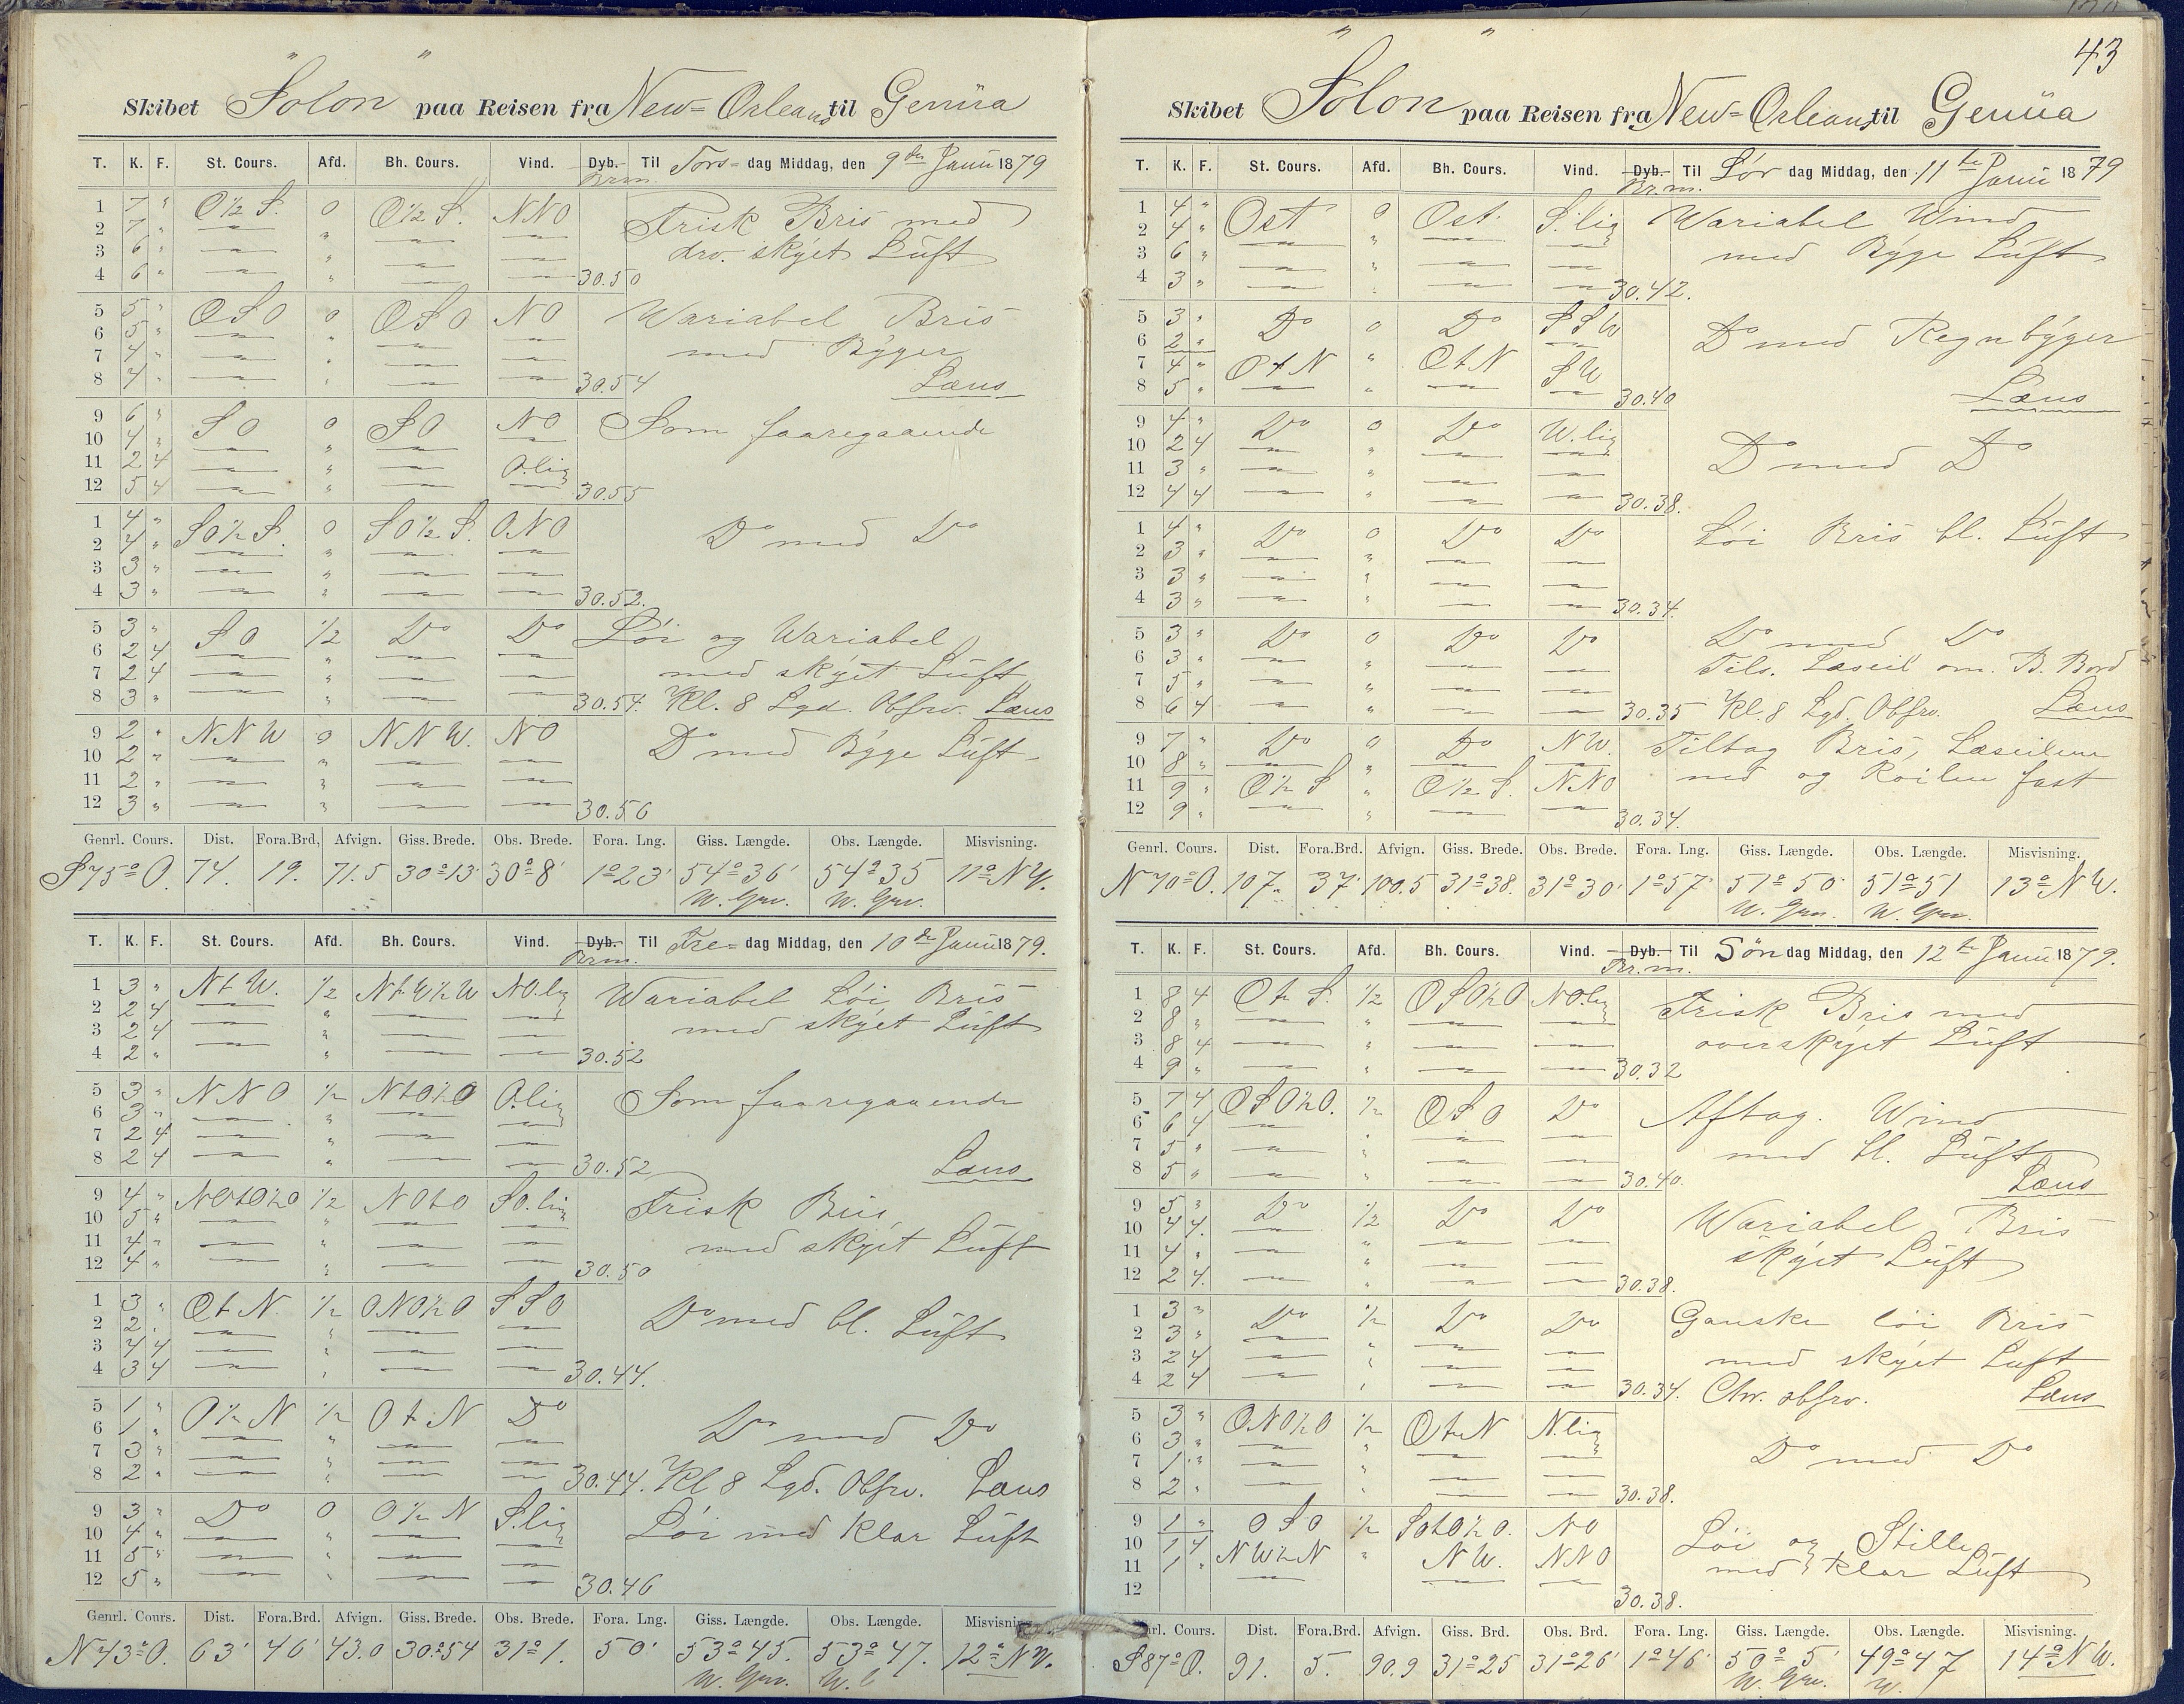 " "
Skibet Solon paa Reisen fra New-Orleans til Genüa
T. K. F. St. Cours. Afd. Bh. Cours. Vind. Dyb. Brm. Til Tors- dag Middag, den 9de Janü 1879
1 7 " O ½ S. 0 O ½ S. NNO Frisk Bris med
2 7 " — " — —
3 6 " — " — — dro. skÿet Lüft
4 6 " — " — — 30.50
5 5 " OSO 0 OSO NO Wariabel Bris
6 5 " — " — —
7 4 " — " — — med Bÿger
8 4 " — " — — 30.54 Læns
9 6 " SO 0 SO NO Som faaregaaende
10 4 " — " — —
11 2 4 — " — O.lig
12 5 4 — " — — 30.55
1 4 " SO ½ S. 0 SO ½ S. ONO Do med Do
2 4 " — " — —
3 3 " — " — —
4 3 " — " — — 30.52.
5 3 " SO ½ Do Do Löi og Wariabel
6 2 4 — " — —
7 2 4 — " — — med skÿet Lüft
8 3 " — " — — 30.54. Kl. 8 Lgd. Obsrv. Læns
9 2 " NNW 0 NNW. NO Do med Bÿge Lüft
10 2 " — " — —
11 2 " — " — —
12 3 " — " — — 30.56
Genrl. Cours. Dist. Fora.Brd. Afvign. Giss. Brede. Obs. Brede. Fora. Lng. Giss. Længde. Obs. Længde. Misvisning.
S 75° O. 74. 19. 71.5 30°13' 30°8' 1°23' 54°36' 54°35 11° NW.
W. Grv. W. Grv.
T. K. F. St. Cours. Afd. Bh. Cours. Vind. Dyb. Brm. Til Fre- dag Middag, den 10de Janü 1879.
1 3 " NtW. ½ NtW½W NO.lig Wariabel Löi Bris
2 2 4 — " — —
3 2 4 — " — — med skÿet Lüft
4 2 " — " — — 30.52
5 3 " NNO ½ NtO½O O.lig Som faaregaaende
6 3 " — " — —
7 2 4 — " — —
8 2 4 — " — — 30.52 Læns
9 4 " NOtO½O ½ NOtO SO.lig Frisk Bris
10 5 " — " — —
11 4 " — " — — med skÿet Lüft
12 4 " — " — — 30.50
1 3 " OtN. ½ ONO½O SSO Do med bl. Lüft
2 2 " — " — —
3 4 4 — " — —
4 3 4 — " — — 30.44.
5 1 " O½N ½ OtN Do Do med Do
6 1 " — " — —
7 3 " — " — —
8 2 " — " — — 30.44. Kl 8 Lgd. Obsrv. Læns
9 3 " Do 0 O½N S.lig Löi med Klar Lüft
10 4 " — " — —
11 5 " — " — —
12 5 " — " — — 30.46
Genrl. Cours. Dist. Fora.Brd. Afvign. Giss. Brede. Obs. Brede. Fora. Lng. Giss. Længde. Obs. Længde. Misvisning
N 43° O. 63' 46' 43.0 30°54 31°1. 50' 53°45. 53°47. 12° NW.
W. Grv. W.
43
" "
Skibet Solon paa Reisen fra New-Orleans til Genüa
T. K. F. St. Cours. Afd. Bh. Cours. Vind. Dyb. Br.m. Til Lör dag Middag, den 11te Janü 1879
1 4 " Ost 0 Ost. S.lig Wariabel Wind
2 4 " — " — —
3 6 " — " — — med Bÿge Lüft
4 3 " — " — — 30.42.
5 3 " Do 0 Do SSW Do med Regnbÿger
6 2 " — —
7 4 " OtN " OtN SW
8 5 " — " — — 30.40 Læns
9 4 " Do 0 Do W.lig Do med Do
10 2 4 — " — —
11 3 " — " — —
12 4 4 — " — — 30.38.
1 4 " Do 0 Do Do Löi Bris bl. Lüft
2 3 " — " — —
3 3 " — " — —
4 3 " — " — — 30.34.
5 3 " Do 0 Do Do Do med Do
6 3 " — " — — Tils. Læseil om. B. Bord
7 5 " — " — —
8 6 4 — " — — 30.35 Kl. 8 Lgd. Obsrv. Læns
9 7 " Do 0 Do NW. Tiltag Bris, Læseilene
10 8 " — " — —
11 9 " O½S " O½S. NNO ned og Röilen fast
12 9 " — " — — 30.34.
Genrl. Cours. Dist. Fora.Brd. Afvign. Giss. Brede. Obs. Brede. Fora. Lng. Giss. Længde. Obs. Længde. Misvisning.
N 70° O. 107. 37' 100.5 31°38. 31°30' 1°57' 51°50' 51°51 13° NW.
W. Grv. W. Grv.
T. K. F. St. Cours. Afd. Bh. Cours. Vind. Dyb. Br.m. Til Sön dag Middag, den 12te Janü 1879.
1 8 4 Ot S. ½ OSO½O NO.lig Frisk Bris med
2 8 " — " — —
3 8 4 — " — — overskÿet Lüft
4 9 " — " — — 30.32
5 7 4 OSO½O. ½ OSO Do Aftag. Wind
6 6 4 — " — —
7 5 " — " — — med bl. Lüft
8 5 " — " — — 30.40. Læns
9 5 " Do ½ Do Do Wariabel Bris
10 4 4. — " — —
11 4 " — " — — skÿet Lüft
12 2 4. — " — — 30.38.
1 3 " Do ½ Do Do Ganske löi Bris
2 3 " — " — —
3 2 4 — " — — med skÿet Lüft
4 2 4 — " — — 30.34. Chr. obsrv. Læns
5 3 " ONO½O ½ OtN N.lig Do med Do
6 3 " — " — —
7 1 " — " — —
8 2 " — " — — 30.38.
9 1 " OSO ½ SOtO½O. NO Löi og Stille
10 1 4
11 1 " NW½N " NW. NNO med Klar Lüft
12 — — — 30.38.
rl. Cours. Dist. Fora.Brd. Afvign. Giss. Brd. Obs. Brd. Fora. Lng. Giss. Længde. Obs. Længde. Misvisning.
S 87° O. 91. 5. 90.9 31°25 31°26' 1°46' 50°5' 49°47 14° NW.
W. Grv. W.